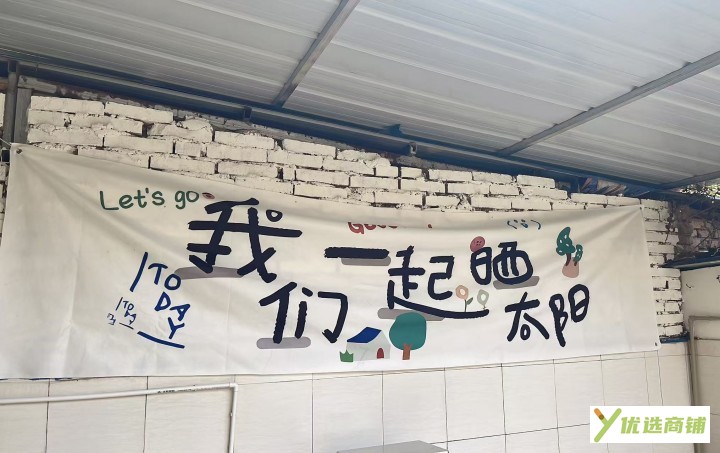 Let's go
我们一起晒太阳
TODAY
TODAY
优选商铺